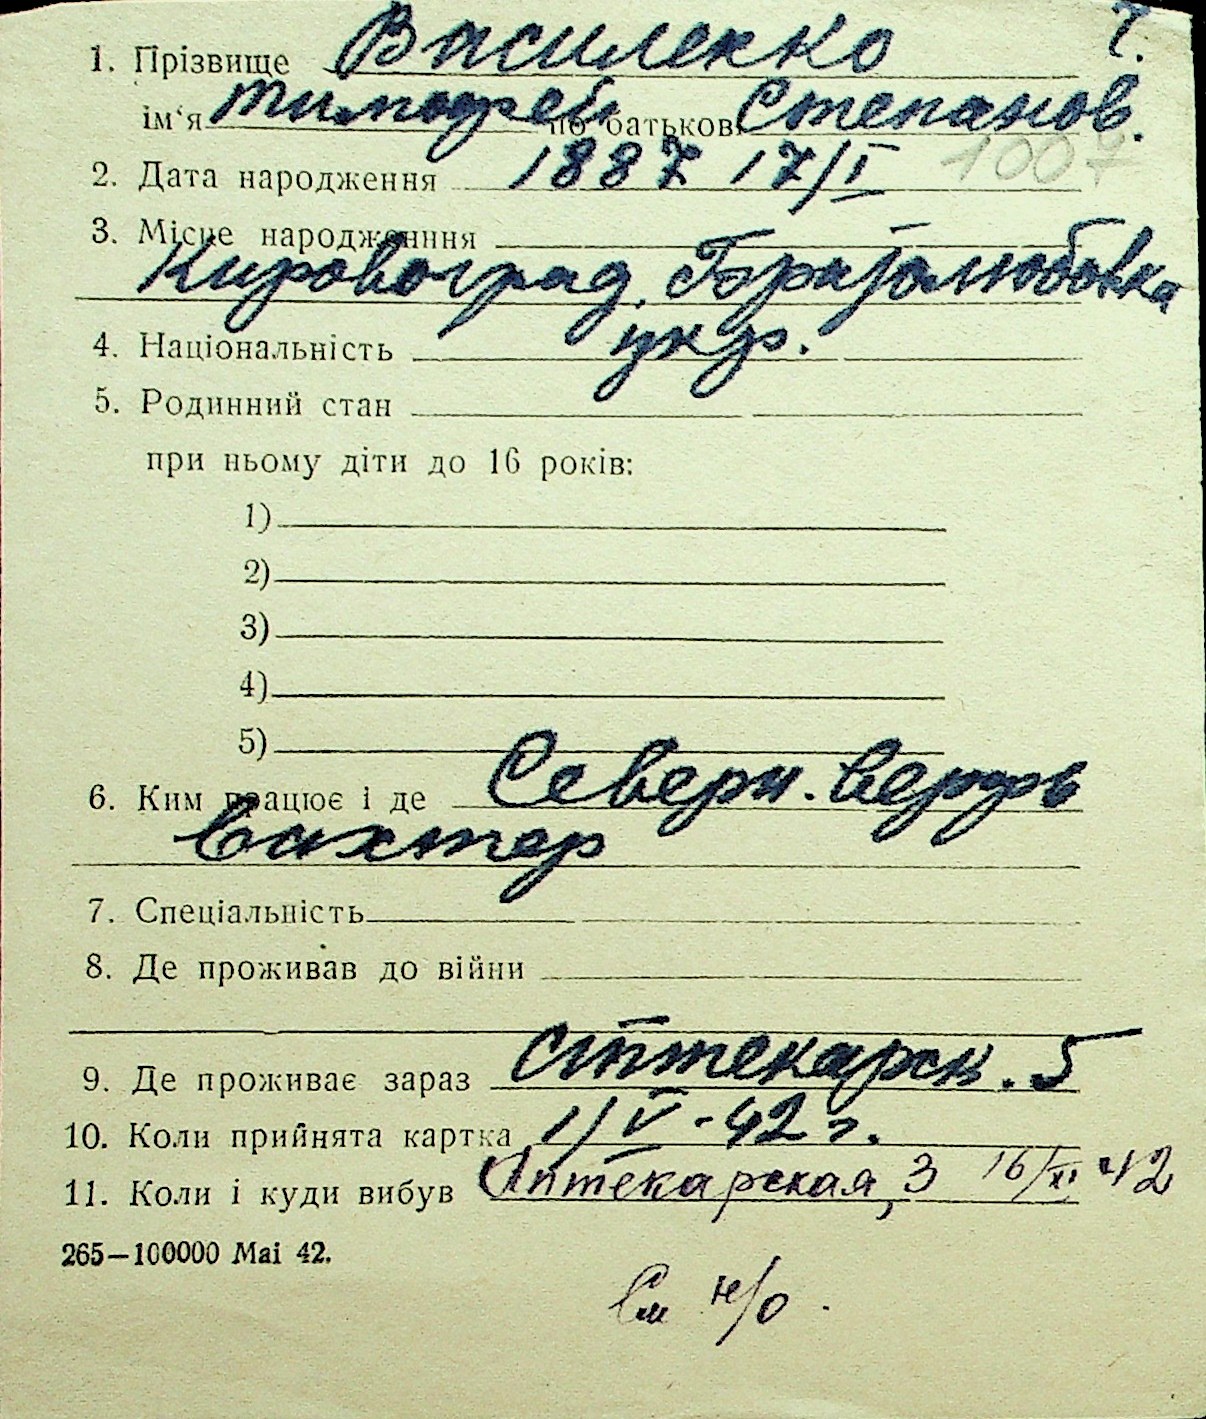 ч.
1. Прізвище Василенко
ім'я Тимофей по батькові Степанов.
1007
2. Дата народження 1887 17/I
3. Місце народженння
Кировоград,
4. Національність укр.
5. Родинний стан
при ньому діти до 16 років:
1)
2)
3)
4)
5)
6. Ким працює і де Северн. верфь
вахтер
7. Спеціальність
8. Де проживав до війни
9. Де проживає зараз Аптекарск. 5
10. Коли прийнята картка 1/V-42 г.
11. Коли і куди вибув Аптекарская, 3 16/XI 42
265—100000 Mai 42.
См н/о.